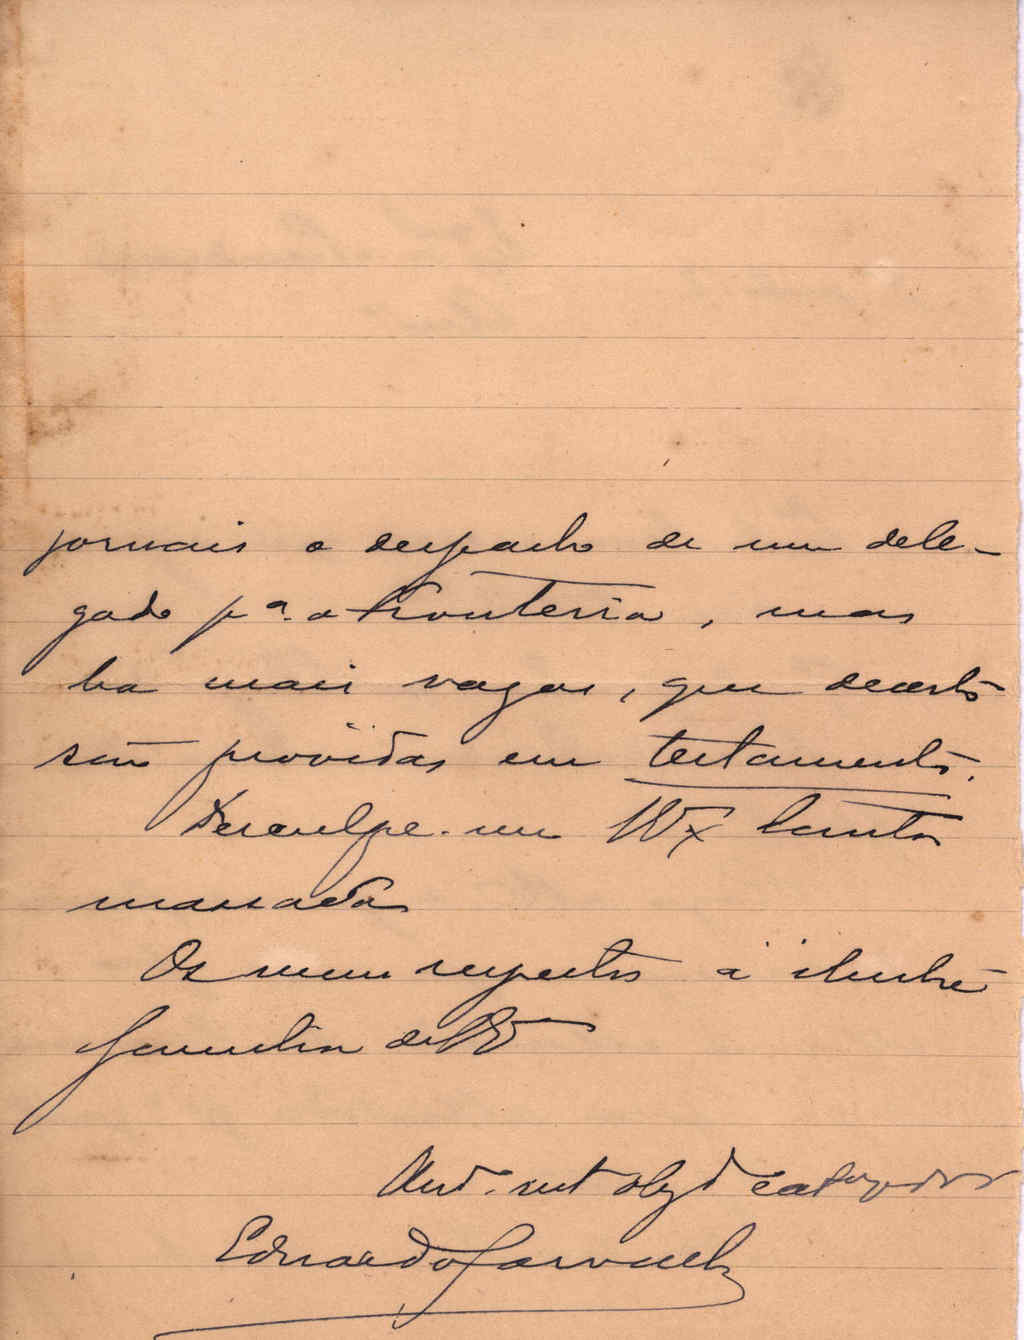 jornais o despacho de um dele-
gado pª. a Fronteira, mas
ha mais vagas, que decerto
são providas em testamento.
Desculpe-me VEx tantas
massadas
Os meus respeitos á illustre
familia de VE
Amº. mt obgdº e
Eduardo Carvalho